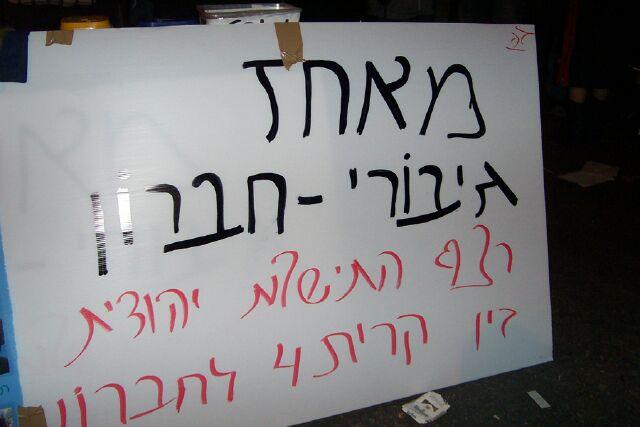 מאחז
גיבורי - חברון
רצף התישבות יהודית
בין קרית 4 לחברון